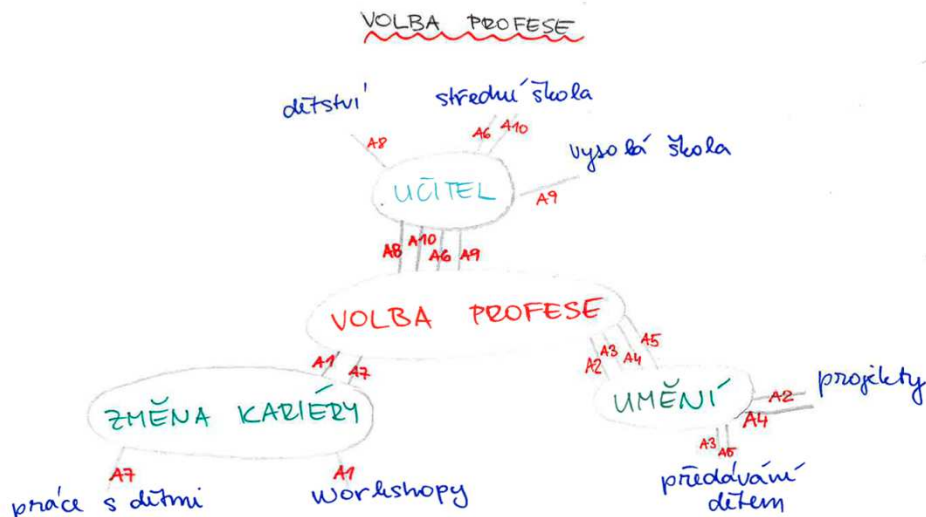 VOLBA PROFESE
dětství
střední škola
A8
A6
A10
vysoká škola
UČITEL
A9
A8
A10
A6
A9
VOLBA PROFESE
A1
A7
A2
A3
A4
A5
ZMĚNA KARIÉRY
UMĚNÍ
A2
projekty
A4
A3
A5
A7
A1
práce s dětmi
workshopy
předávání
dětem